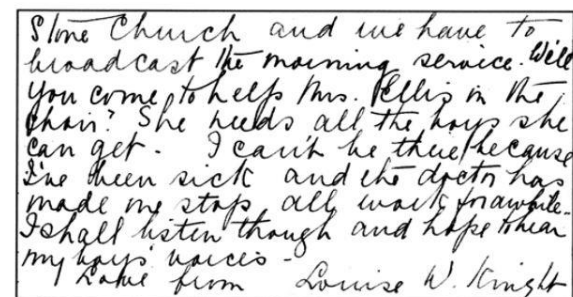 Stone Church and we have to
broadcast the morning service. Will
you come to help Mrs. Pellis in the
choir? She needs all the boys she
can get. I can't be there because
I've been sick and the doctor has
made me stop all work for awhile.
I shall listen though and hope to hear
my boys' voices -
Love from Louise W. Knight